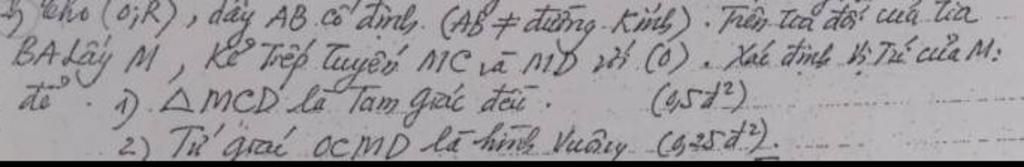 Cho (O;R), dây AB cố định (AB ≠ đường kính). Trên tia đối của tia
BA lấy M, kẻ tiếp tuyến MC và MD với (O). Xác định vị trí của M:
để . 1) △MCD là Tam giác đều. (0,5đ²)
2) Tứ giác OCMD là hình vuông (0,25đ²).